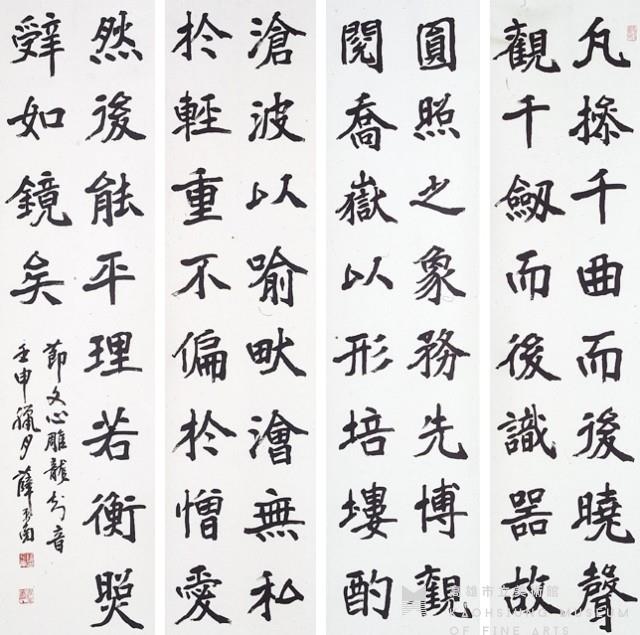 凡操千曲而後曉聲
觀千劔而後識器故
圓照之象務先博觀
閱喬嶽以形培塿酌
滄波以喻畎澮無私
於輕重不偏於憎愛
然後能平理若衡照
辭如鏡矣
節文心雕龍知音
壬申臘月薛平南
高雄市立美術館
KAOHSIUNG MUSEUM
OF FINE ARTS